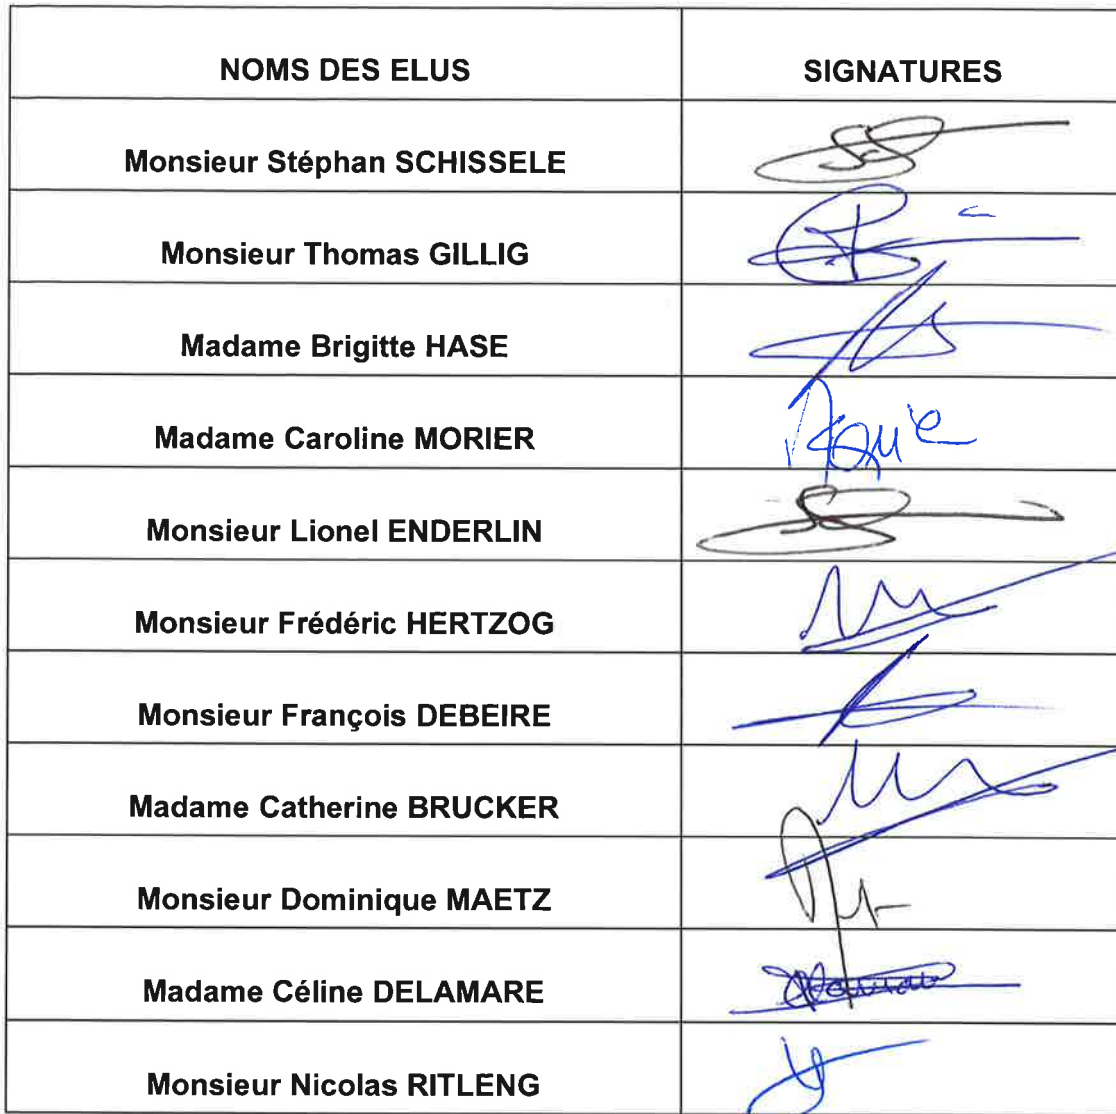 NOMS DES ELUS
SIGNATURES
Monsieur Stéphan SCHISSELE
Monsieur Thomas GILLIG
Madame Brigitte HASE
Madame Caroline MORIER
Monsieur Lionel ENDERLIN
Monsieur Frédéric HERTZOG
Monsieur François DEBEIRE
Madame Catherine BRUCKER
Monsieur Dominique MAETZ
Madame Céline DELAMARE
Monsieur Nicolas RITLENG